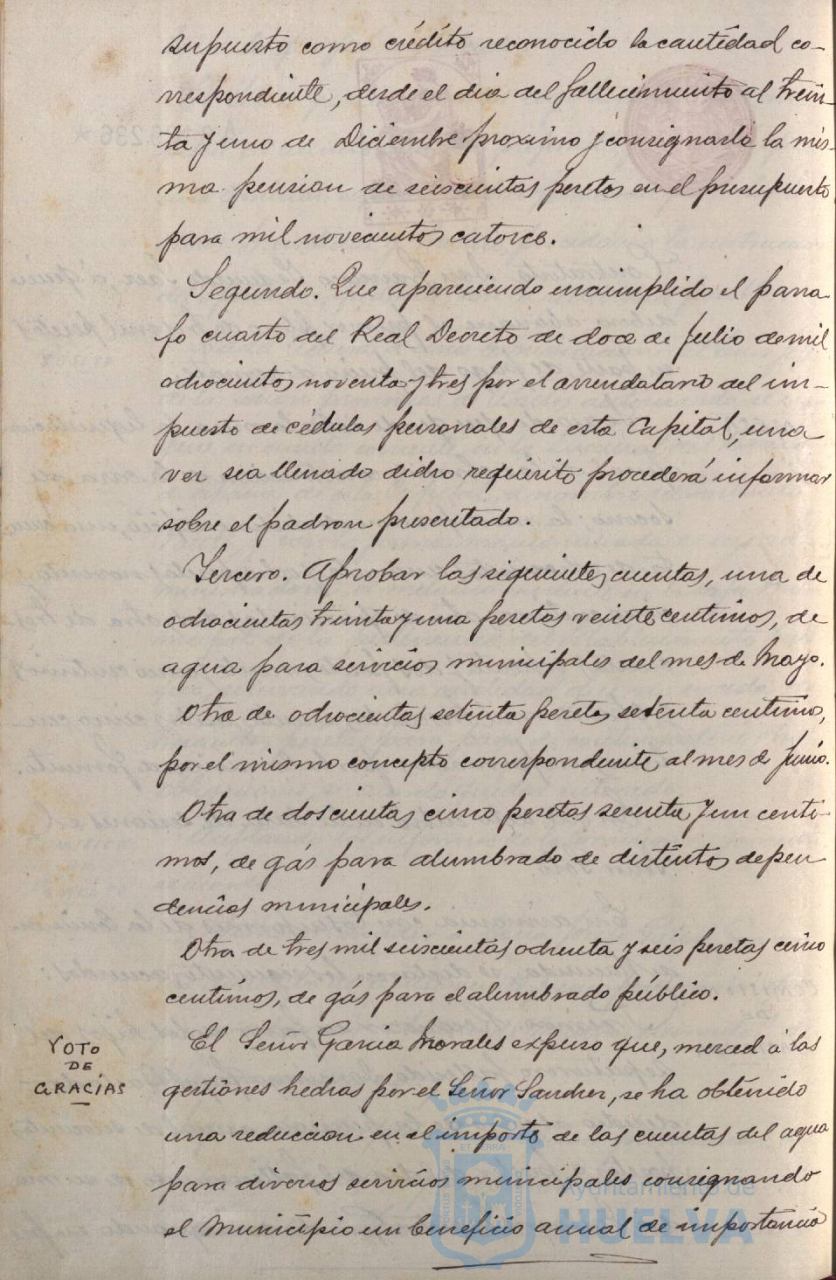 supuesto como crédito reconocido la cantidad co-
rrespondiente, desde el dia del fallecimiento al trein-
ta y uno de Diciembre proximo y consignarle la mis-
ma pension de seiscientas pesetas en el presupuesto
para mil novecientos catorce.
Segundo. Que apareciendo incumplido el parra-
fo cuarto del Real Decreto de doce de Julio de mil
ochocientos noventa y tres por el arrendatario del im-
puesto de cédulas personales de esta Capital, una
vez sea llenado dicho requisito procederá informar
sobre el padron presentado.
Tercero. Aprobar las siguientes cuentas, una de
ochocientas treinta y una pesetas veinte centimos, de
agua para servicios municipales del mes de Mayo.
Otra de ochocientas setenta pesetas setenta centimos,
por el mismo concepto correspondiente al mes de Junio.
Otra de doscientas cinco pesetas sesenta y un centi-
mos, de gás para alumbrado de distintos depen
dencias municipales.
Otra de tres mil seiscientas ochenta y seis pesetas cinco
centimos, de gás para el alumbrado público.
VOTO
DE
GRACIAS
El Señor Garcia Morales expuso que, merced á las
gestiones hechas por el Señor Sanchez, se ha obtenido
una reduccion en el importe de las cuentas del agua
para diversos servicios municipales consignando
el Municipio un beneficio anual de importancia
Ayuntamiento de
HUELVA